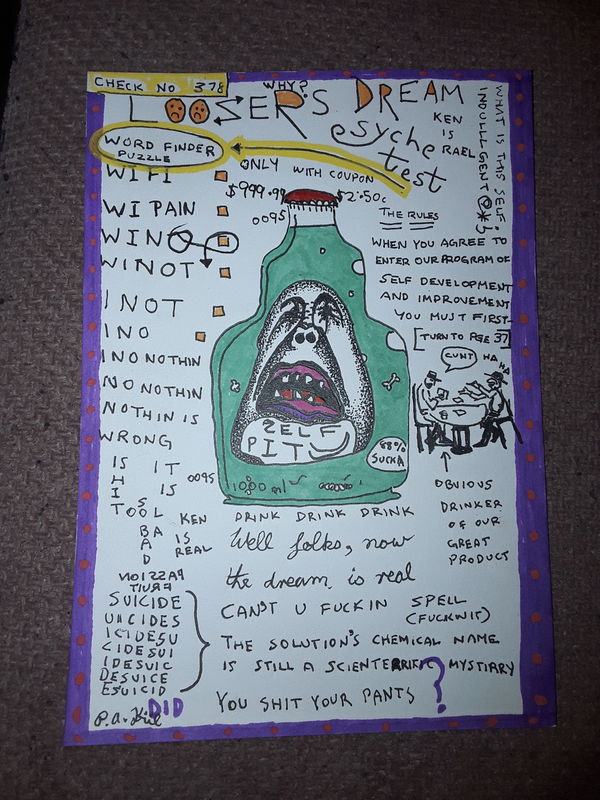 CHECK NO 378
WHY?
LOOSER'S DREAM
esyche
test
KEN
IS
RAEL
WHAT IS THIS SELF.
INDULLLGENT @*!
WORD FINDER
PUZZLE
ONLY WITH COUPON
$999.99 $2.50c
0095
WI FI
WI PAIN
WINO
WINOT
I NOT
I NO
I NO NOTHIN
NO NOTHIN
NOTHIN IS
WRONG
THE RULES
WHEN YOU AGREE TO
ENTER OUR PROGRAM OF
SELF DEVELOPMENT
AND IMPROVEMENT
YOU MUST FIRST-
[TURN TO PGE 37]
CUNT
HA HA
HA
ZELF
PIT
88%
SUCKA
1000 ml
0095
IS IT
H IS
I S
TOOL
BA
A
D
KEN
IS
REAL
DRINK DRINK DRINK
OBVIOUS
DRINKER
OF OUR
GREAT
PRODUCT
Well folks, now
the dream is real
CAN'T U FUCKIN SPELL
(FUCKWIT)
THE SOLUTION'S CHEMICAL NAME
IS STILL A SCIENTERRIFIC MYSTIARY
YOU SHIT YOUR PANTS ?
SUICIDE
UICIDES
ICIDESU
CIDESUI
IDESUIC
DESUICE
ESUICID
DID